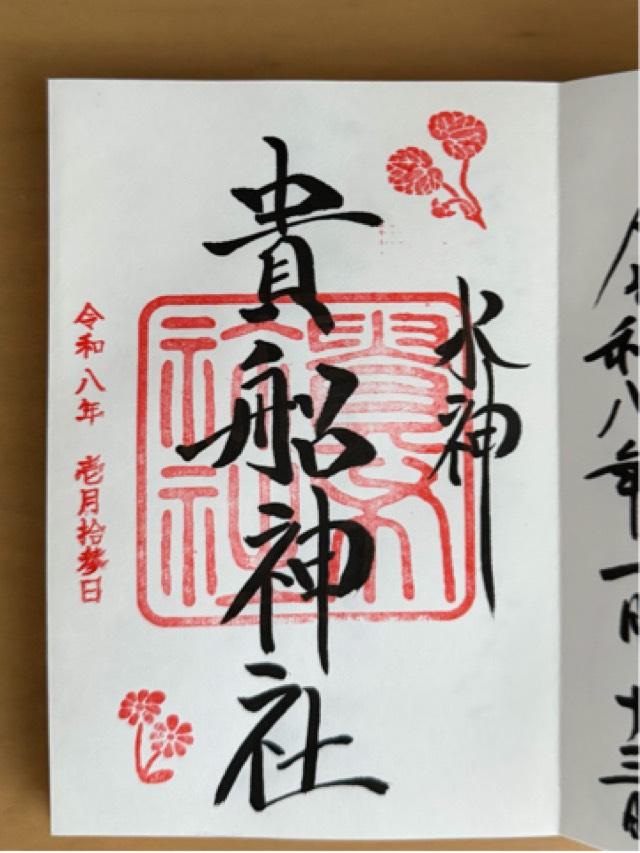 令和八年一月十三日
水神
貴船神社
令和八年 壱月拾参日